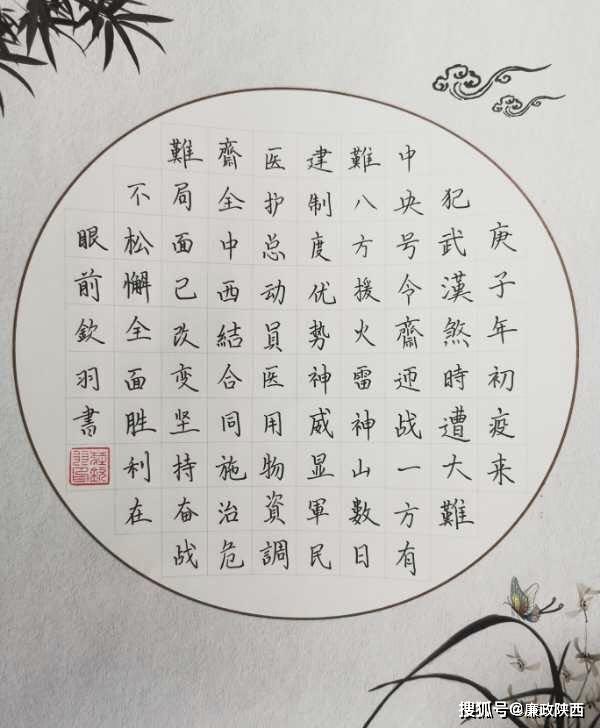 庚子年初疫来
犯武漢煞時遭大難
中央号令齋迎战一方有
難八方援火雷神山數日
建制度优势神威显軍民
医护总动員医用物資調
齋全中西結合同施治危
難局面己改变坚持奋战
不松懈全面胜利在
眼前欽羽書
搜狐号@廉政陕西